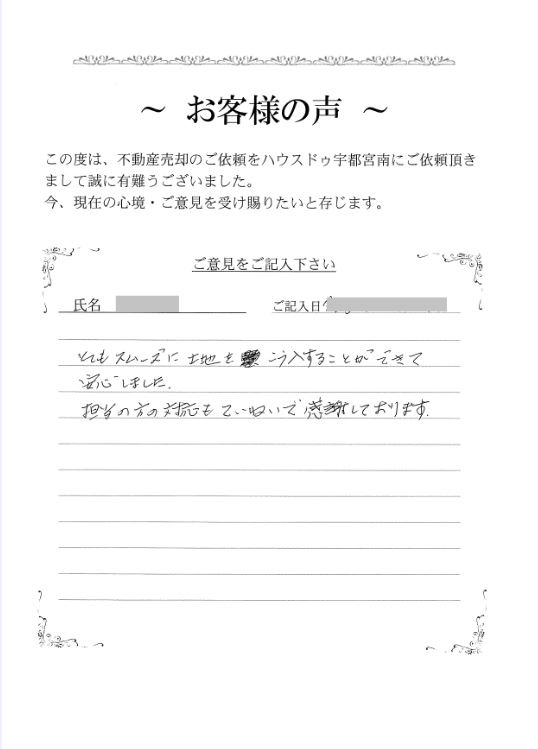 ～ お客様の声 ～
この度は、不動産売却のご依頼をハウスドゥ宇都宮南にご依頼頂き
まして誠に有難うございました。
今、現在の心境・ご意見を受け賜りたいと存じます。
ご意見をご記入下さい
氏名 ご記入日
とてもスムーズに土地をこう入することができて
安心しました.
担当の方の対応もていねいで感謝しております.